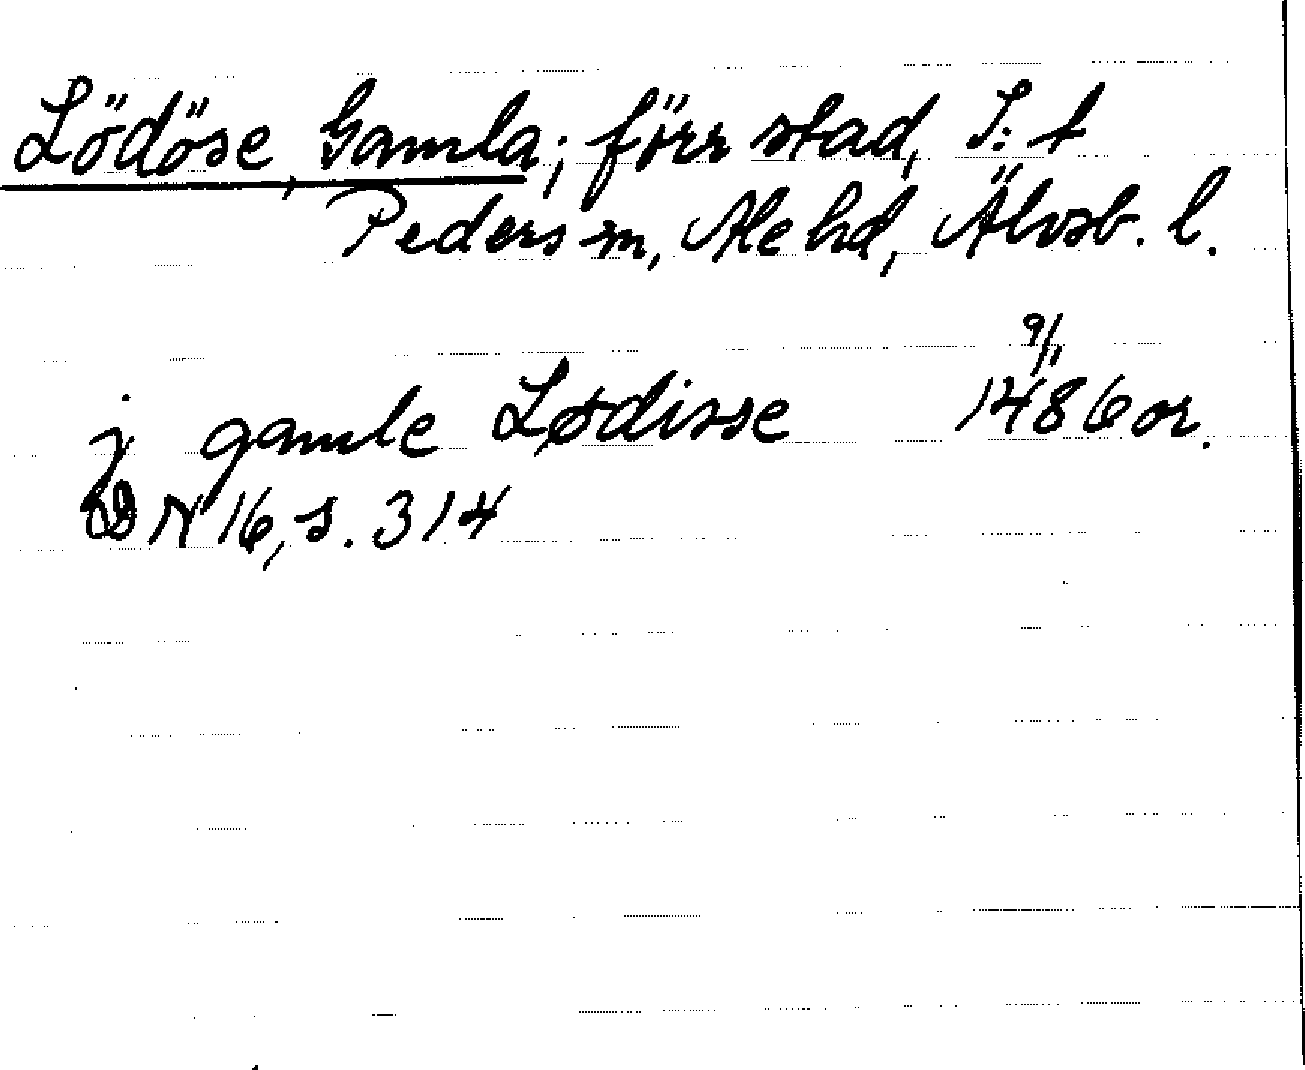 Lödöse, Gamla; förr stad, S:t
Peders sn, Ale hd, Älvsb. l.
9/11
j gamle Lødisse 1486 or.
DN 16, s. 314